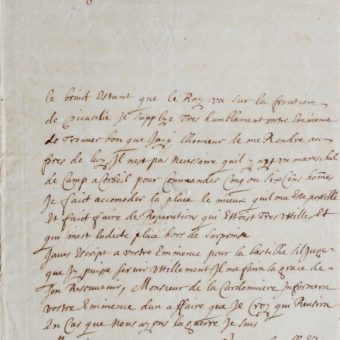 le bruit estant que le Roy va sur la frontiere
de picardie Je supplye tres humblement vostre Eminence
de trouver bon que J'aye l'honneur de me Rendre au
pres de luy Il n'est pas necessaire quil y ayt un mareschal
de Camp a Corbeil pour Commander Cinq ou six Cens home
Je faict accomoder la place le mieux quil m'a Esté possible
Et faict faire de Reparations qui Estoist tres Utille, Et
qui mest ladicte place hors de surprise
Javes Escript a vostre Eminense pour la bastille sil Juge
que Jy puise servir Utillement Il me faira la grace de
son Resouvenir, Monsieur de la Cardonniere Informera
vostre Eminence dun affaire que Je Croy qui Reusira
En Cas que nous ayons la guerre Je suis